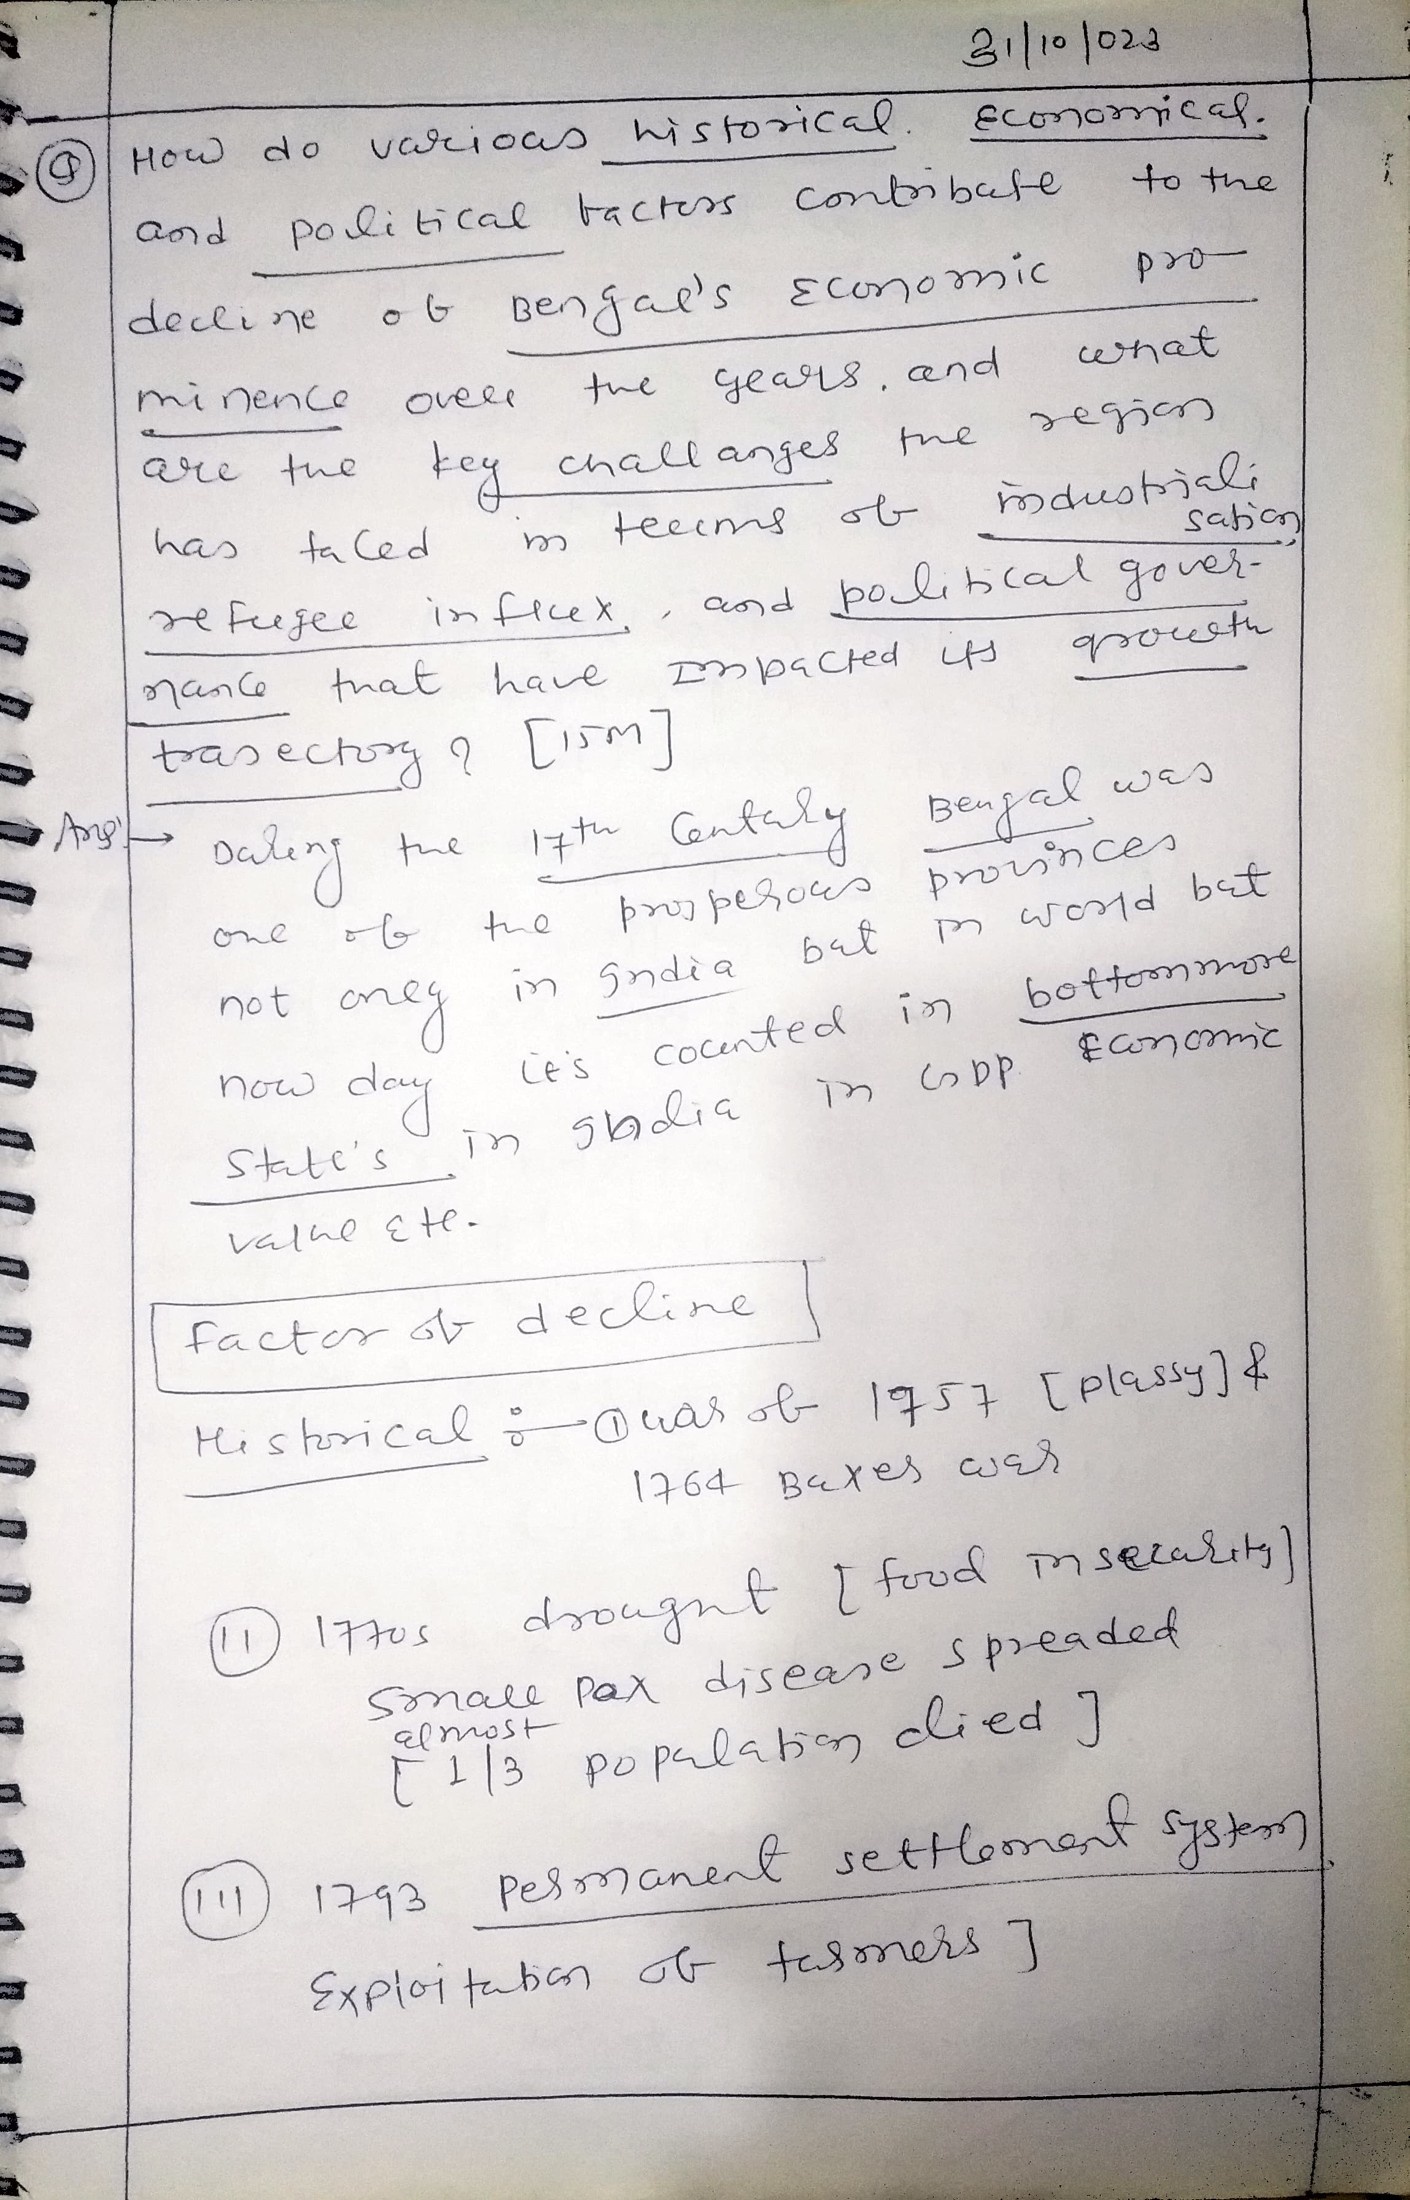 31/10/023
Q How do various historical. Economical.
and political factors contribute to the
decline of Bengal's Economic pro-
minence over the years, and what
are the key challanges the region
has faced in terms of industriali
sation,
refugee influx, and political gover-
nance that have Impacted its growth
trasectory? [15M]
Ans: → During the 17th Century Bengal was
one of the prosperous provinces
not only in India but in world but
now day it's counted in bottommore
State's in India in GDP. Economic
value Etc.
Factor of decline
Historical :- ① war of 1757 [plassy] &
1764 Baxer war
(II) 1770s drought [food insecurity]
small pox disease spreaded
almost
[1/3 population died]
(III) 1793 Permanent settlement system
Exploitation of farmers]